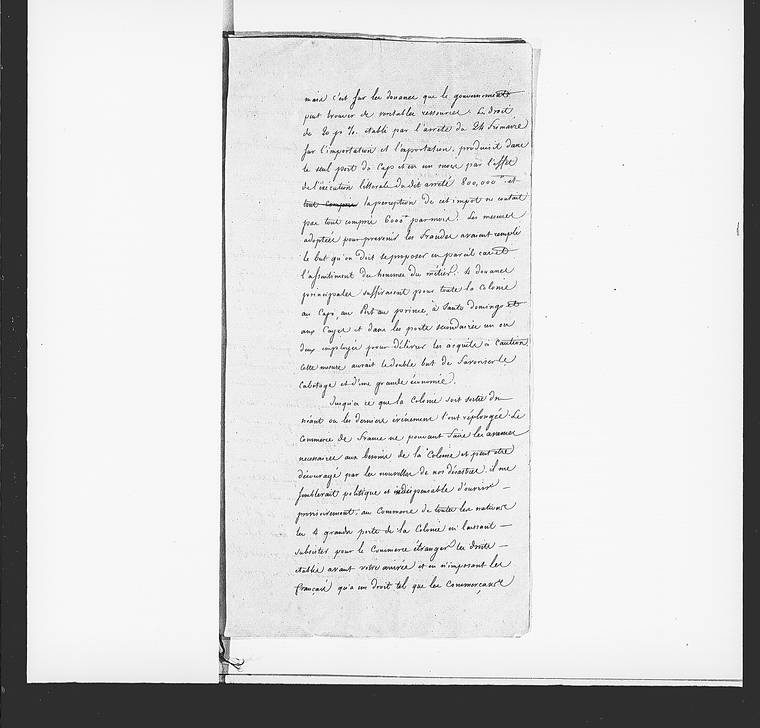 mais c'est sur les douanes que le gouvernement
peut trouver de veritables ressources. Le droit
de 20 p% etabli par l'arreté du 24 frimaire
sur l'importation et l'exportation, produisit dans
le seul port du Cap et en un mois par l'effet
de l'exécution litterale du dit arreté 800,000 et
tout compris la perception de cet impot ne coutait
pas tout compris 6000 par mois. Les mesures
adoptées pour prevenir les fraudes avaient rempli
le but qu'on doit se proposer en pareil cas et
l'assentiment des hommes du métier: 4 douanes
principales suffiraient pour toute la Colonie
au Cap, au Port au prince, à Santo domingo et
aux Cayes et dans les ports secondaires un ou
deux employés pour délivrer les acquits à caution
cette mesure aurait le double but de favoriser le
Cabotage et d'une grande économie.
Jusqu'à ce que la Colonie soit sortie du
néant ou les derniers évènemens l'ont replongée. Le
Commerce de France ne pouvant faire les avances
necessaires aux besoins de la Colonie et peut etre
découragé par les nouvelles de nos désastres, il me
semblerait politique et indispensable d'ouvrir
provisoirement, au Commerce de toutes les nations
les 4 grands ports de la Colonie en laissant
subsister pour le Commerce étranger les droits
etablis avant votre arrivée et en n'imposant les
français qu'a un droit tel que les Commerçans